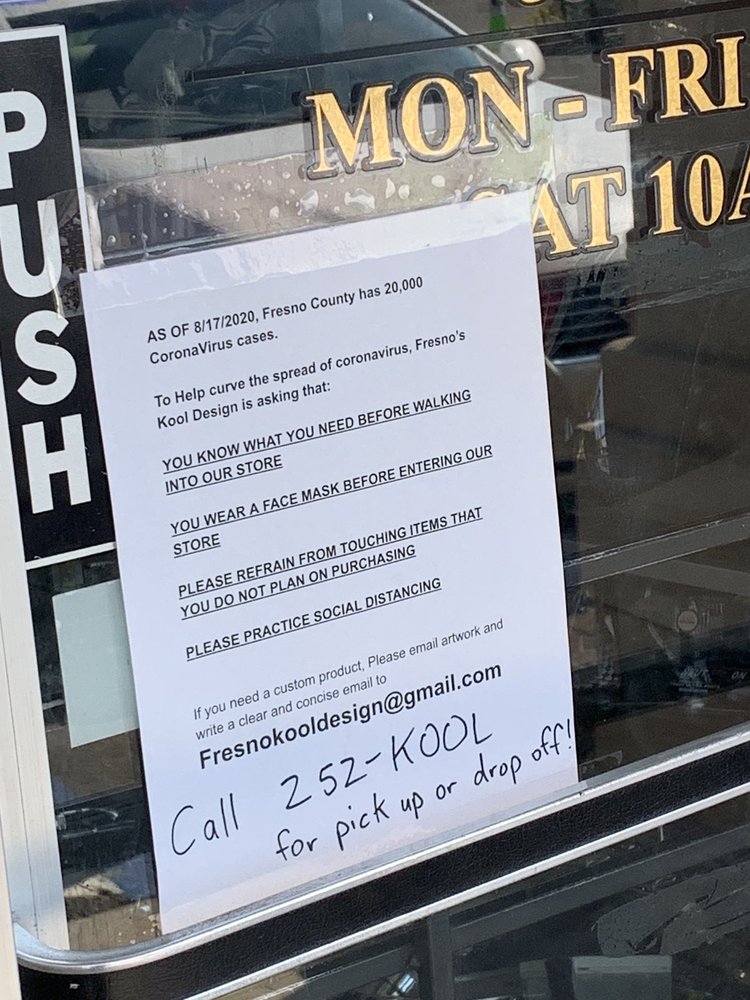 PUSH
MON - FRI
SAT 10A
AS OF 8/17/2020, Fresno County has 20,000
CoronaVirus cases.
To Help curve the spread of coronavirus, Fresno's
Kool Design is asking that:
YOU KNOW WHAT YOU NEED BEFORE WALKING
INTO OUR STORE
YOU WEAR A FACE MASK BEFORE ENTERING OUR
STORE
PLEASE REFRAIN FROM TOUCHING ITEMS THAT
YOU DO NOT PLAN ON PURCHASING
PLEASE PRACTICE SOCIAL DISTANCING
If you need a custom product, Please email artwork and
write a clear and concise email to
Fresnokooldesign@gmail.com
Call 252-KOOL
for pick up or drop off!